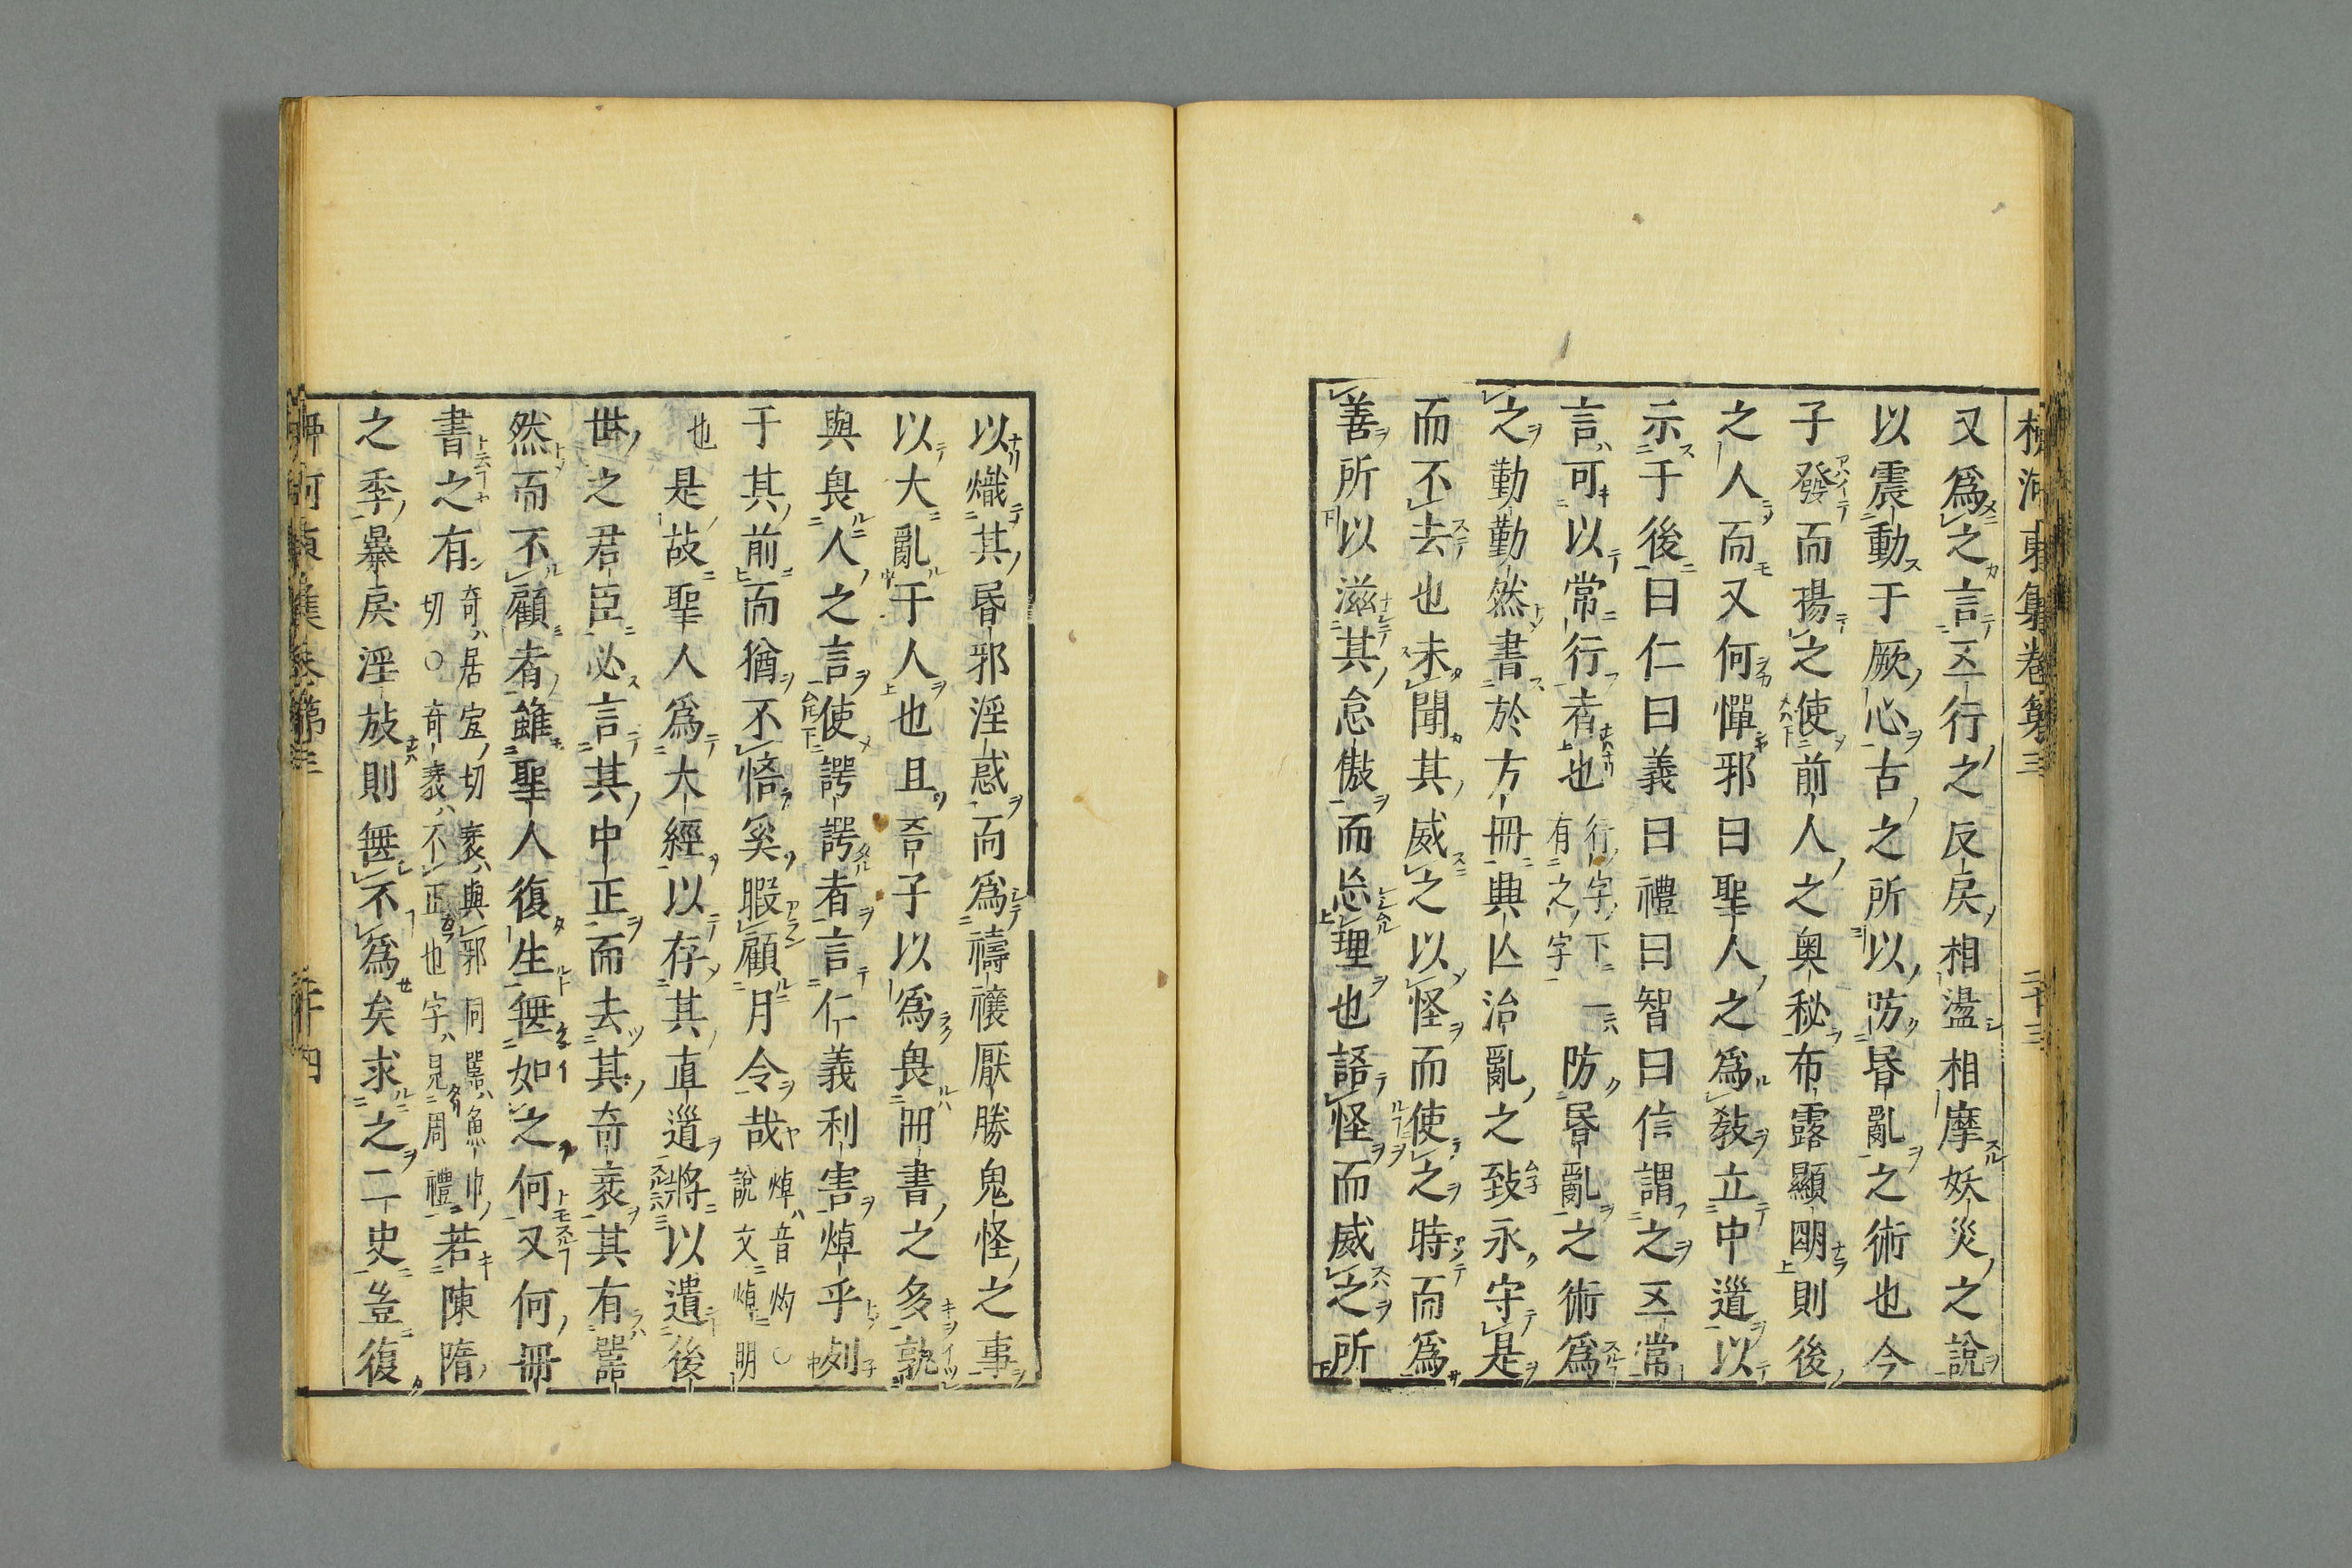 柳河東集卷第三 二十三
又爲之言五行之反戾相盪相摩妖災之說
以震動于厥心古之所以防昬亂之術也今
子發而揚之使前人之奧秘布露顯明則後
之人而又何憚邪曰聖人之爲教立中道以
示于後曰仁曰義曰禮曰智曰信謂之五常
言可以常行者也行字下一有之字防昬亂之術爲
之勤勤然書於方冊興亾治亂之致永守是
而不去也未聞其威之以怪而使之時而爲
善所以滋其怠傲而忘理也語怪而威之所
以熾其昬邪淫惑而爲禱禳厭勝鬼怪之事
以大亂于人也且吾子以爲畏冊書之多孰
與畏人之言使諤諤者言仁義利害焯乎列
于其前而猶不悟奚暇顧月令哉焯音灼○說文焯明
也是故聖人爲大經以存其直道將以遺後
世之君臣必言其中正而去其奇衺其有嚚
然而不顧者雖聖人復生無如之何又何冊
書之有奇居宜切衺與邪同嚚魚巾切○奇衺不正也字見周禮若陳隋
之季暴戾淫放則無不爲矣求之二史豈復
柳河東集卷第三 二十四